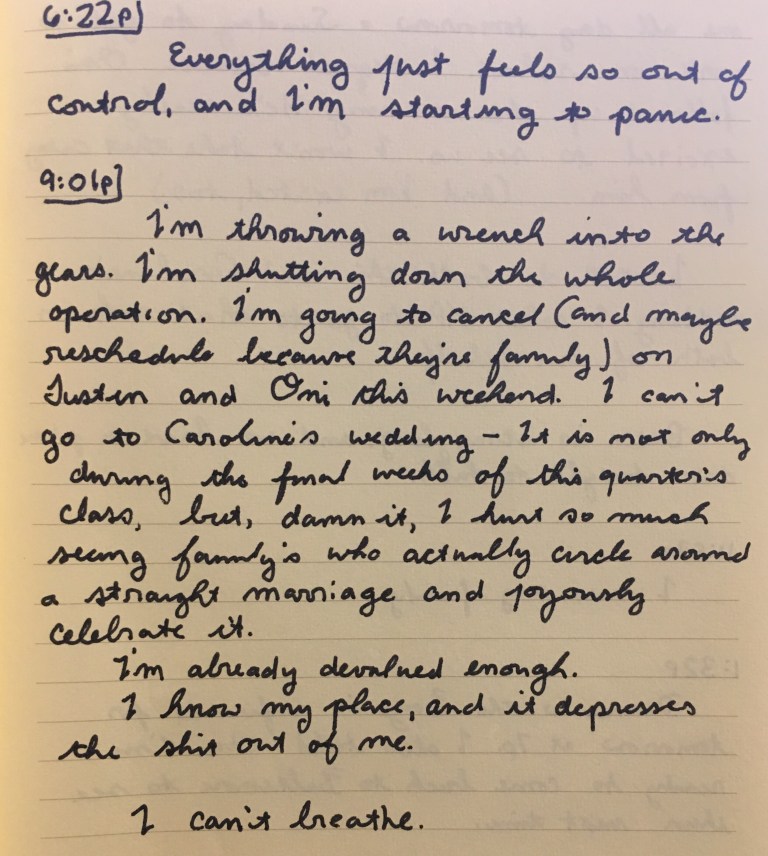 6:22p]
Everything just feels so out of
control, and I'm starting to panic.
9:01p]
I'm throwing a wrench into the
gears. I'm shutting down the whole
operation. I'm going to cancel (and maybe
reschedule because they're family) on
Justin and Oni this weekend. I can't
go to Caroline's wedding – It is not only
during the final weeks of this quarter's
class, but, damn it, I hurt so much
seeing family's who actually circle around
a straight marriage and joyously
celebrate it.
I'm already devalued enough.
I know my place, and it depresses
the shit out of me.
I can't breathe.